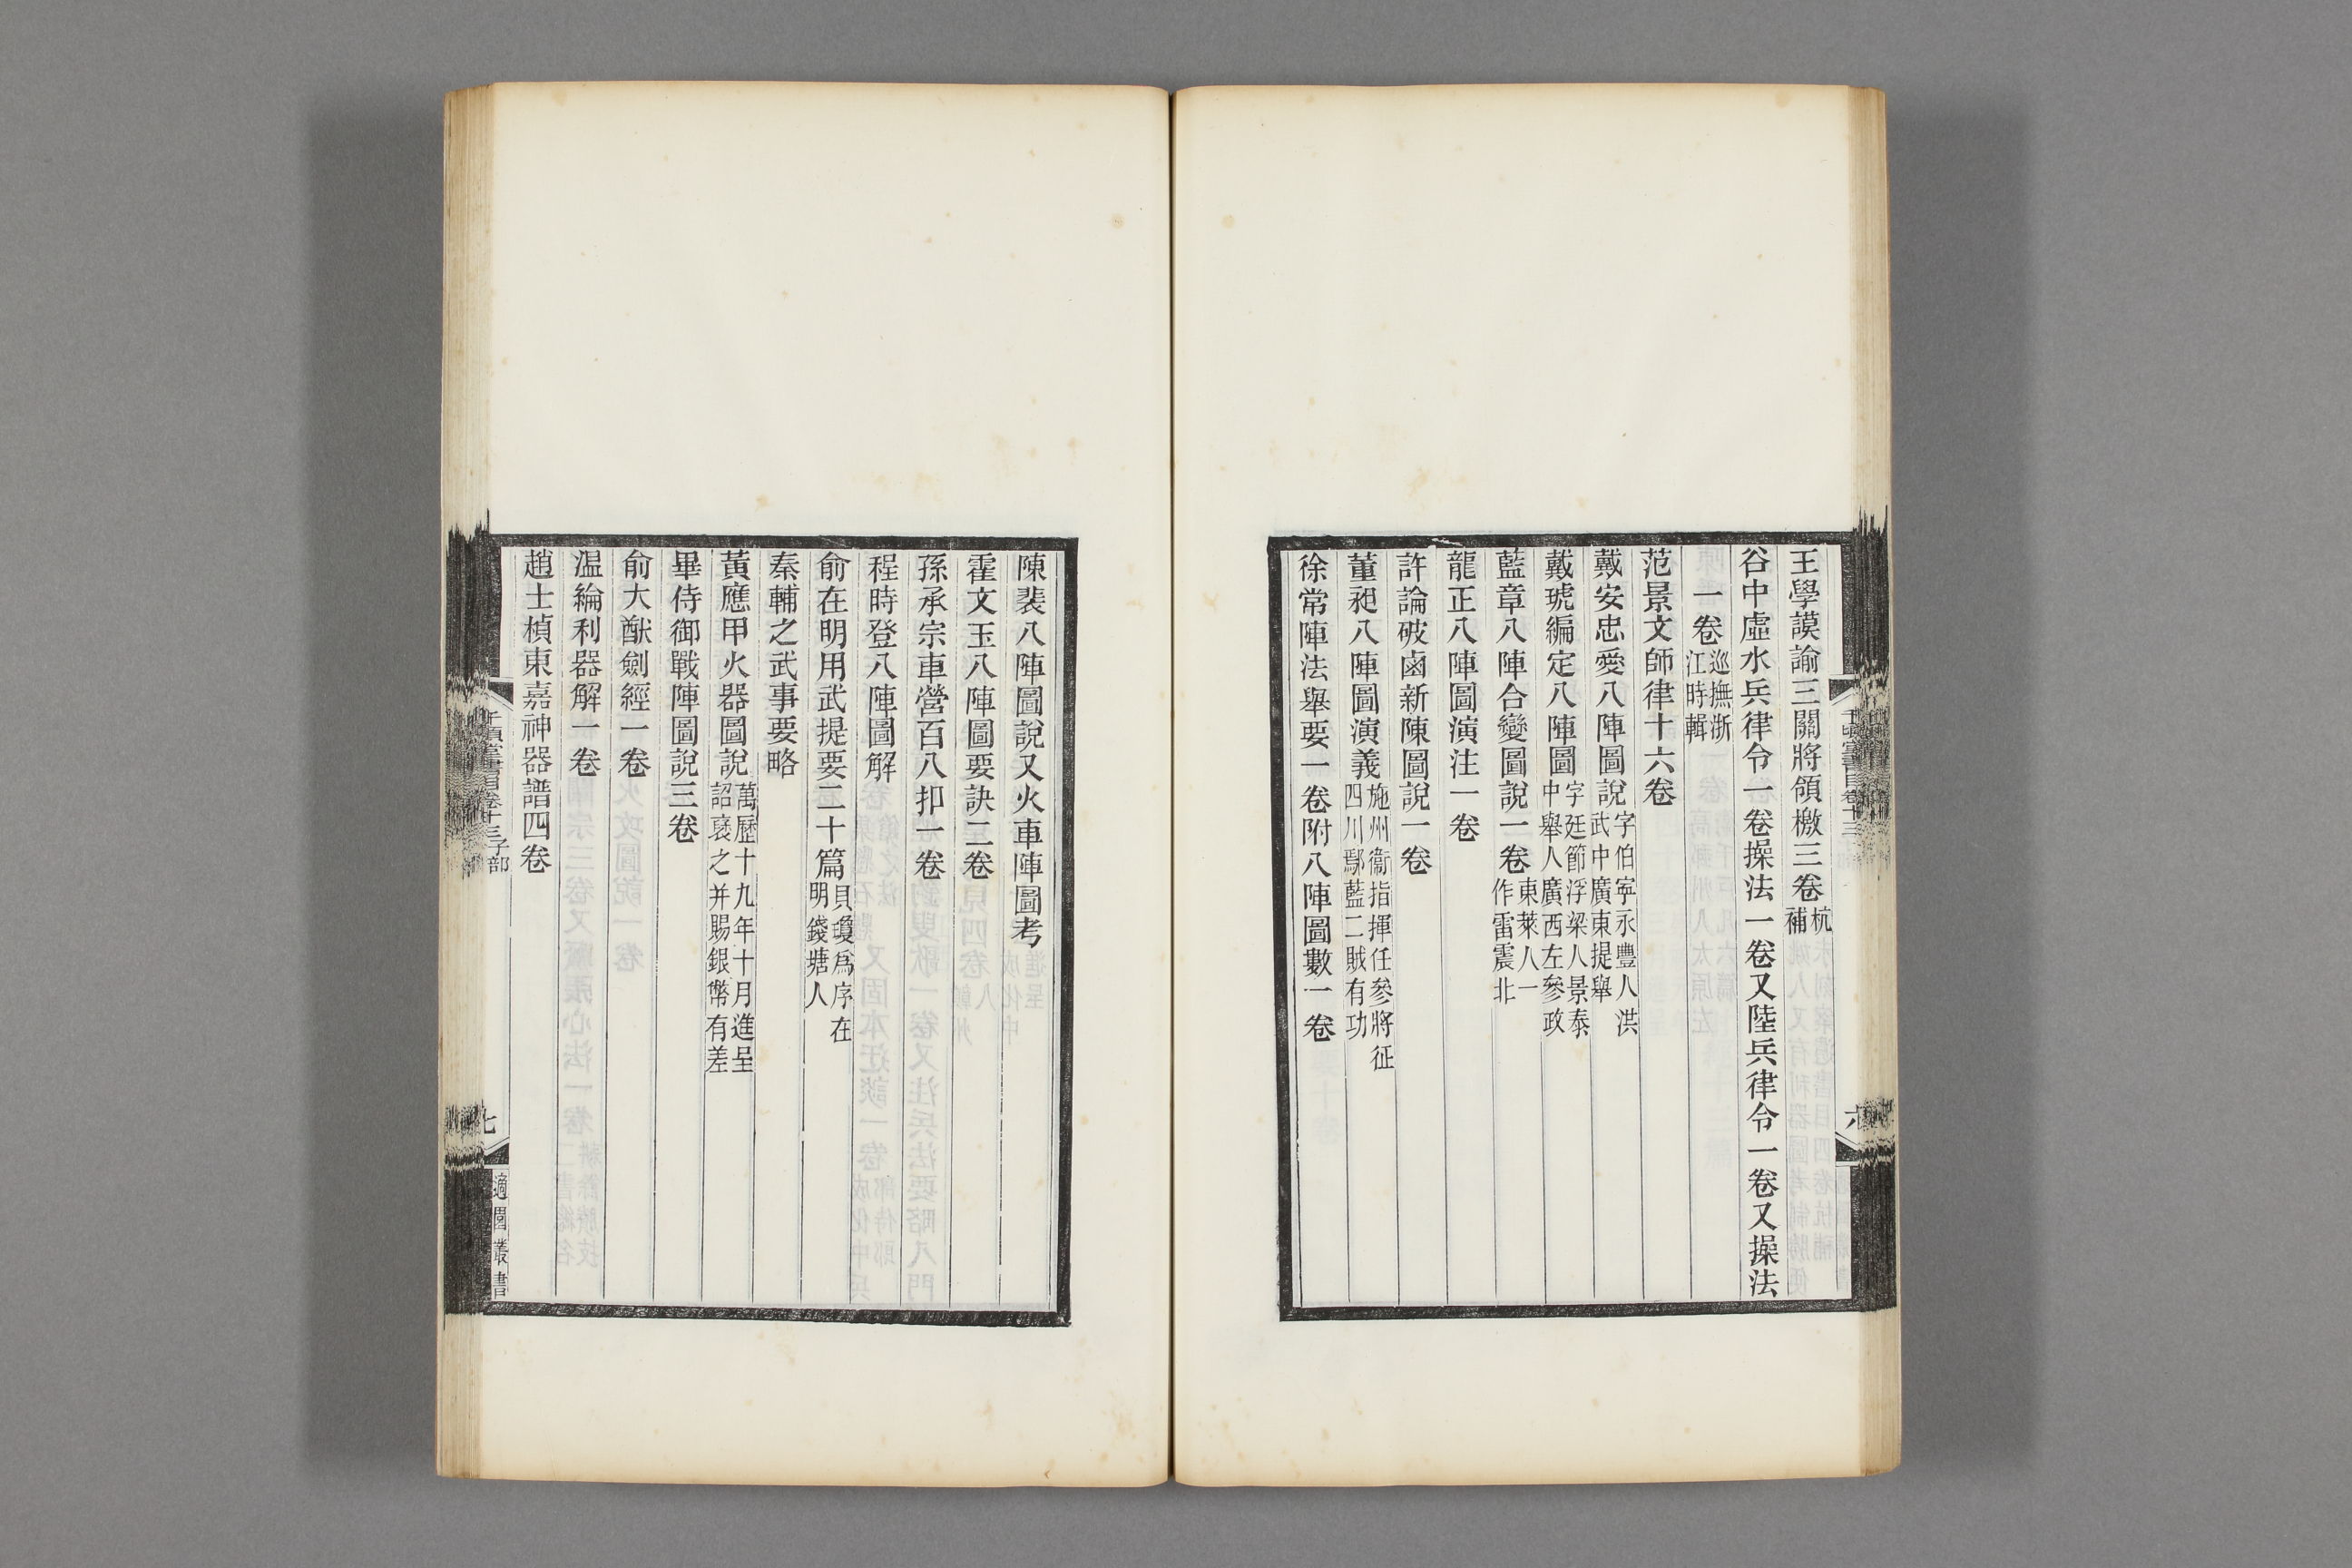 王學謨諭三關將領檄三卷杭補
谷中虛水兵律令一卷操法一卷又陸兵律令一卷又操法
一卷巡撫浙江時輯
范景文師律十六卷
戴安忠愛八陣圖說字伯寧永豐人洪武中廣東提舉
戴琥編定八陣圖字廷節浮梁人景泰中舉人廣西左參政
藍章八陣合變圖說一卷東萊人一作雷震北
龍正八陣圖演注一卷
許論破鹵新陳圖說一卷
董昶八陣圖演義施州衞指揮任參將征四川鄢藍二賊有功
徐常陣法舉要一卷附八陣圖數一卷
六
陳裴八陣圖說又火車陣圖考
霍文玉八陣圖要訣二卷
孫承宗車營百八扣一卷
程時登八陣圖解
俞在明用武提要二十篇貝瓊爲序在明錢塘人
秦輔之武事要略
黃應甲火器圖說萬歷十九年十月進呈詔褒之并賜銀幣有差
畢侍御戰陣圖說三卷
俞大猷劍經一卷
温綸利器解一卷
趙士楨東嘉神器譜四卷
千頃堂書目卷十三子部
七
適園叢書